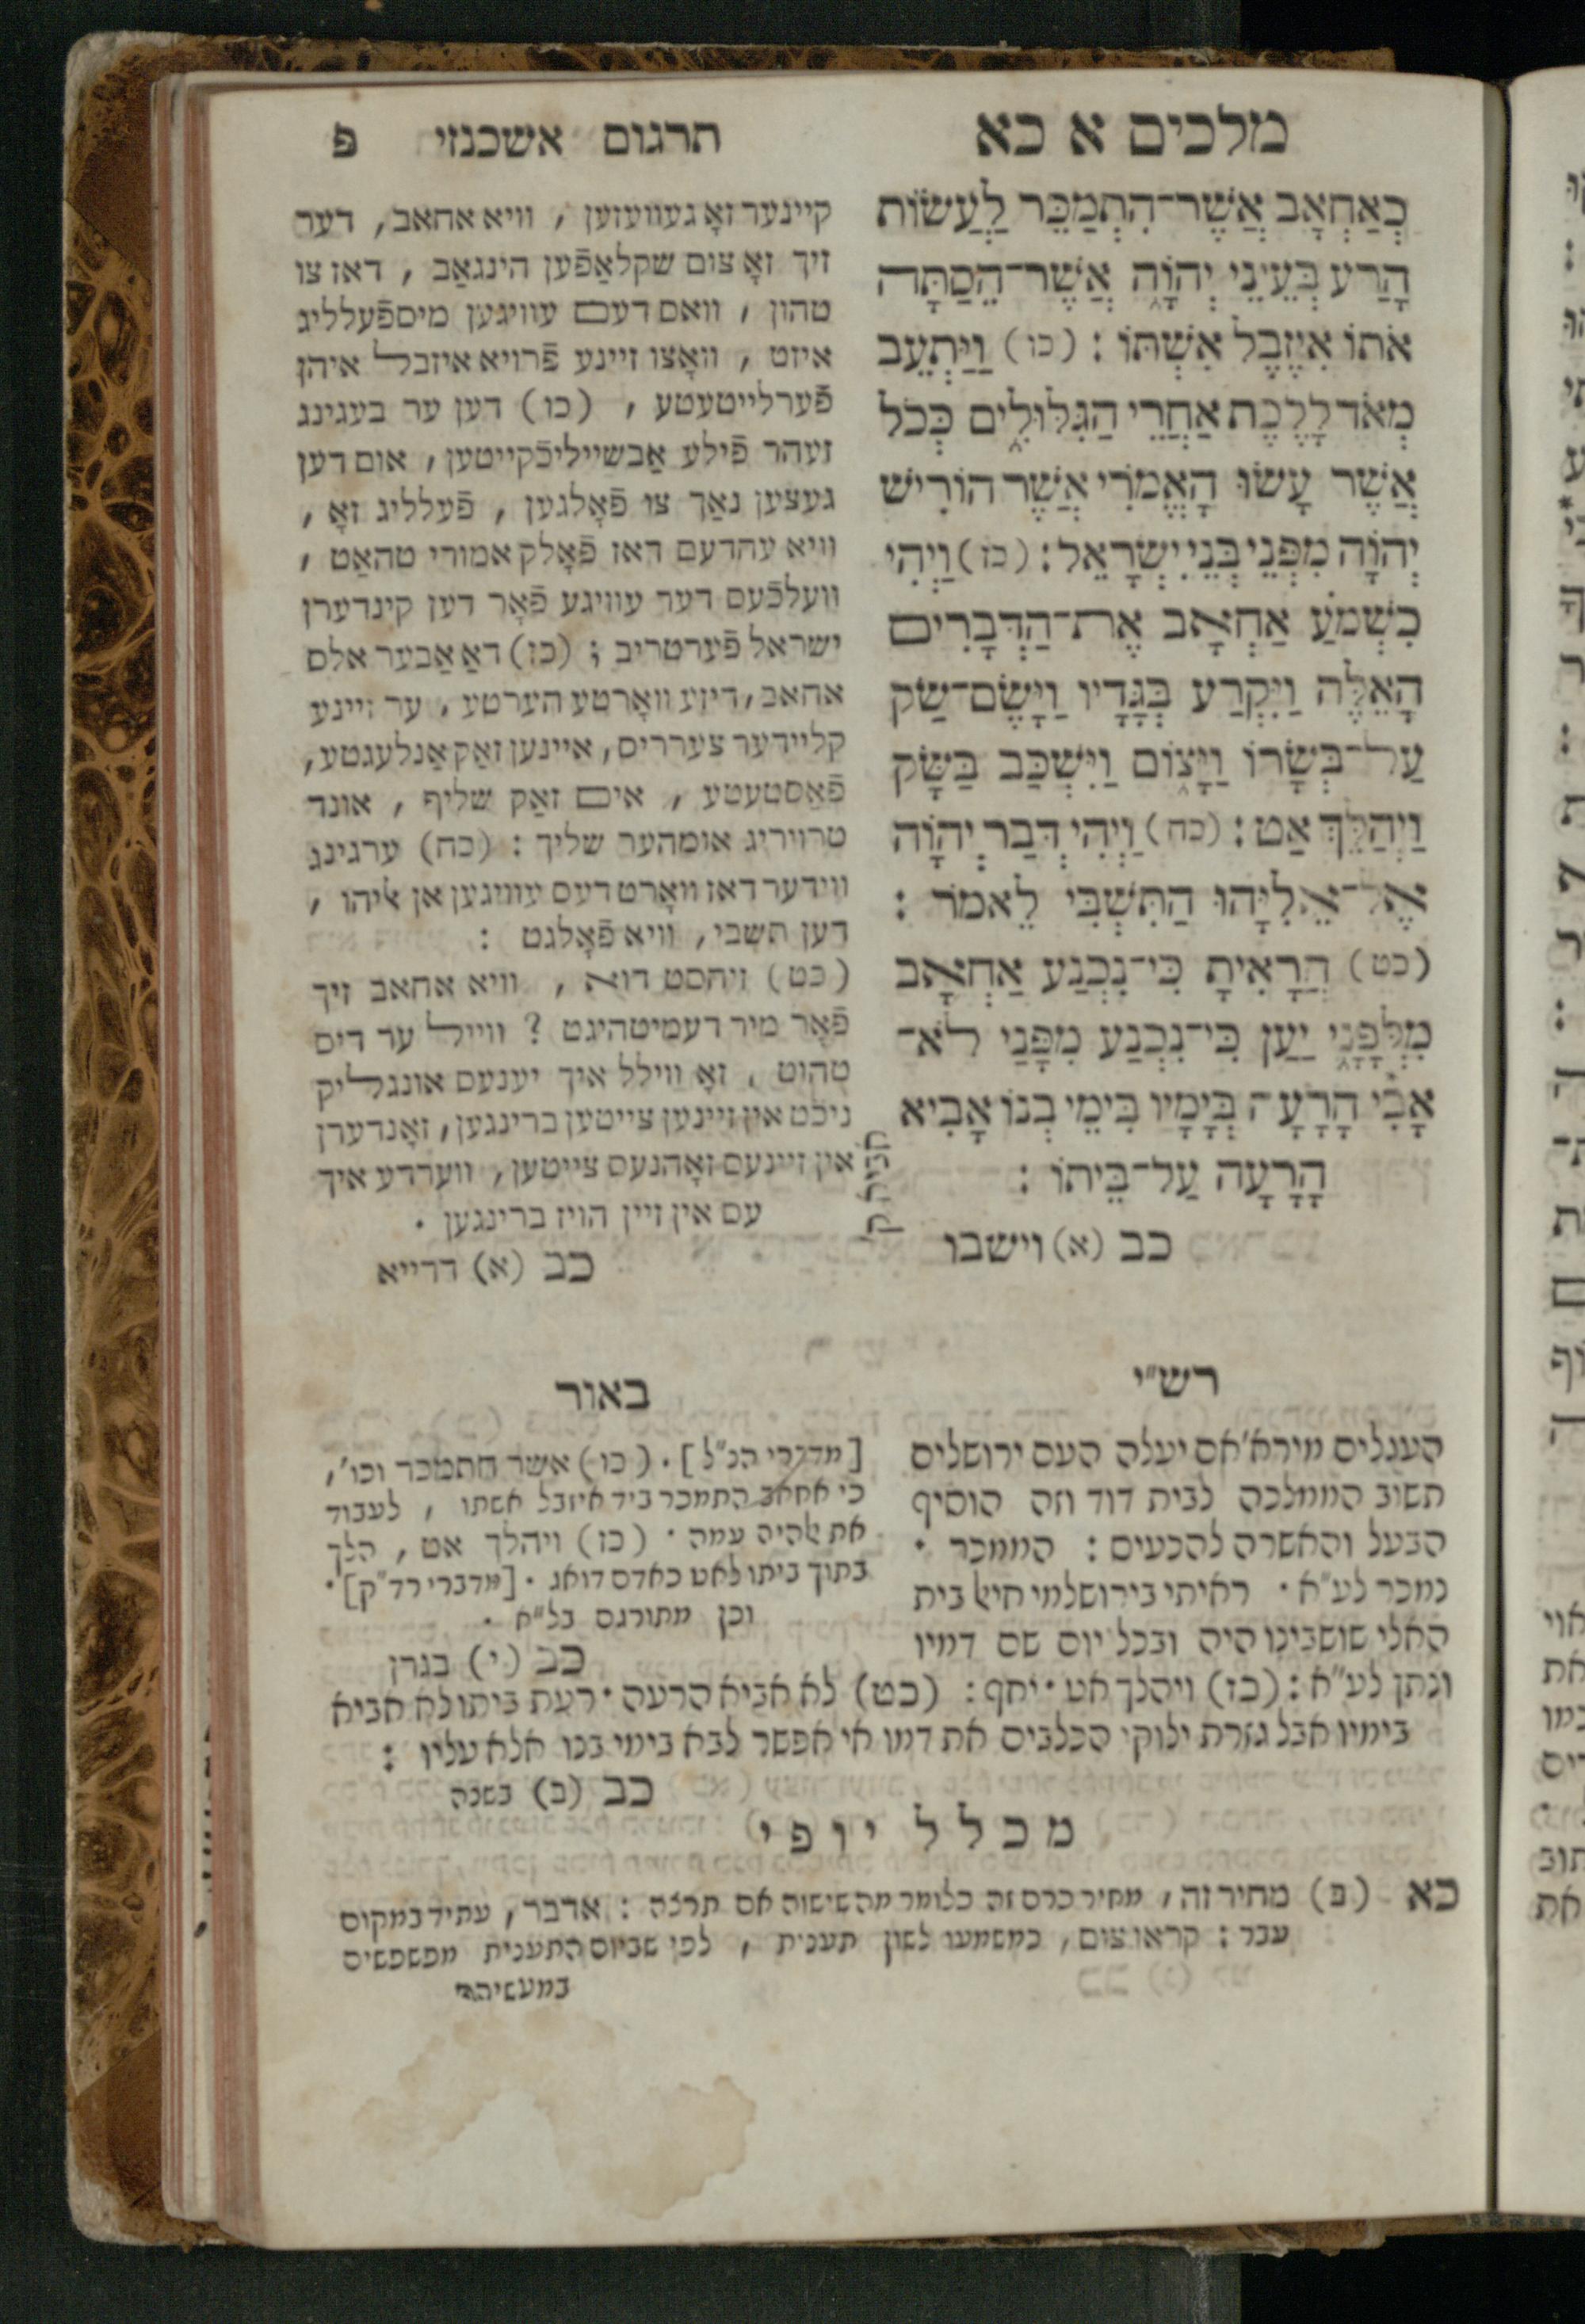 מלכים א כא
כְּאַחְאָב אֲשֶׁר־הִתְמַכֵּר לַעֲשׂוֹת
הָרַע בְּעֵינֵי יְהֹוָה אֲשֶׁר־הֵסַתָּה
אֹתוֹ אִיזֶבֶל אִשְׁתּוֹ : (כו) וַיַּתְעֵב
מְאֹד לָלֶכֶת אַחֲרֵי הַגִּלּוּלִים כְּכֹל
אֲשֶׁר עָשׂוּ הָאֱמֹרִי אֲשֶׁר הוֹרִישׁ
יְהֹוָה מִפְּנֵי בְּנֵי יִשְׂרָאֵל : (כז) וַיְהִי
כִשְׁמֹעַ אַחְאָב אֶת־הַדְּבָרִים
הָאֵלֶּה וַיִּקְרַע בְּגָדָיו וַיָּשֶׂם־שַׂק
עַל־בְּשָׂרוֹ וַיָּצוֹם וַיִּשְׁכַּב בַּשָּׂק
וַיְהַלֵּךְ אַט : (כח) וַיְהִי דְּבַר יְהֹוָה
אֶל־אֵלִיָּהוּ הַתִּשְׁבִּי לֵאמֹר :
(כט) הֲרָאִיתָ כִּי־נִכְנַע אַחְאָב
מִלְּפָנָי יַעַן כִּי־נִכְנַע מִפָּנַי לֹא־
אָבִי הָרָעָה בְּיָמָיו בִּימֵי בְנוֹ אָבִיא
הָרָעָה עַל־בֵּיתוֹ :
כב (א) וישבו
תרגום אשכנזי פ
קיינער זאָ געוועזען , וויא אחאב , דער
זיך זאָ צום שקלאַפֿען הינגאַב , דאז צו
טהון , וואס דעם עוויגען מיספֿעלליג
איזט , וואָצו זיינע פֿרויא איזבל איהן
פֿערלייטעטע , (כו) דען ער בעגינג
זעהר פֿילע אַבשייליכֿקייטען , אום דען
געצען נאַך צו פֿאָלגען , פֿעלליג זאָ ,
וויא עהדעם דאז פֿאָלק אמורי טהאַט ,
וועלכֿעם דער עוויגע פֿאָר דען קינדערן
ישראל פֿערטריב ; (כז) דאַ אַבער אלס
אחאב , דיזע וואָרטע הערטע , ער זיינע
קליידער צערריס , איינען זאַק אַנלעגטע ,
פֿאַסטעטע , אים זאַק שליף , אונד
טרויריג אומהער שליך : (כח) ערגינג
ווידער דאז וואָרט דעס עוויגען אן אליהו ,
דען תשבי , וויא פֿאָלגט :
(כט) זיהסט דוא , וויא אחאב זיך
פֿאָר מיר דעמיטהיגט ? ווייל ער דיס
טהוט , זאָ ווילל איך יענעס אונגליק
ניכֿט אין זיינען צייטען ברינגען , זאָנדערן
אין זיינעס זאָהנעס צייטען , ווערדע איך
עס אין זיין הויז ברינגען .
כב (א) דרייא
רש״י
העגלים מירא׳ אם יעלה העם ירושלים
תשוב הממלכה לבית דוד וזה הוסיף
הבעל והאשרה להכעים : הממכר .
נמכר לע״א . ראיתי בירושלמי חיאל בית
האלי שושבינו היה ובכל יום שם דמיו
ונתן לע״א : (כז) ויהלך אט . יחף : (כט) לא אביא הרעה . רעת ביתו לא אביא
בימיו אבל גזרת ילוקו הכלבים את דמו אי אפשר לבא בימי בנו אלא עליו :
כב (ב) בשנה
באור
[מדברי הנ״ל] . (כו) אשר התמכר וכו׳ ,
כי אחאב התמכר ביד איזבל אשתו , לעבוד
את אלהיה עמה . (כז) ויהלך אט , הלך
בתוך ביתו לאט כאדם דואג . [מדברי רד״ק] .
וכן מתורגם בל״א .
כב (י) בגרן
מכלל יופי
כא (ב) מחיר זה , מחיר כרם זה כלומר מה שישוה אם תרצה : אדבר , עתיד במקום
עבר : קראו צום , כמשמעו לשון תענית , לפי שביום התענית מפשפשים
במעשיהם